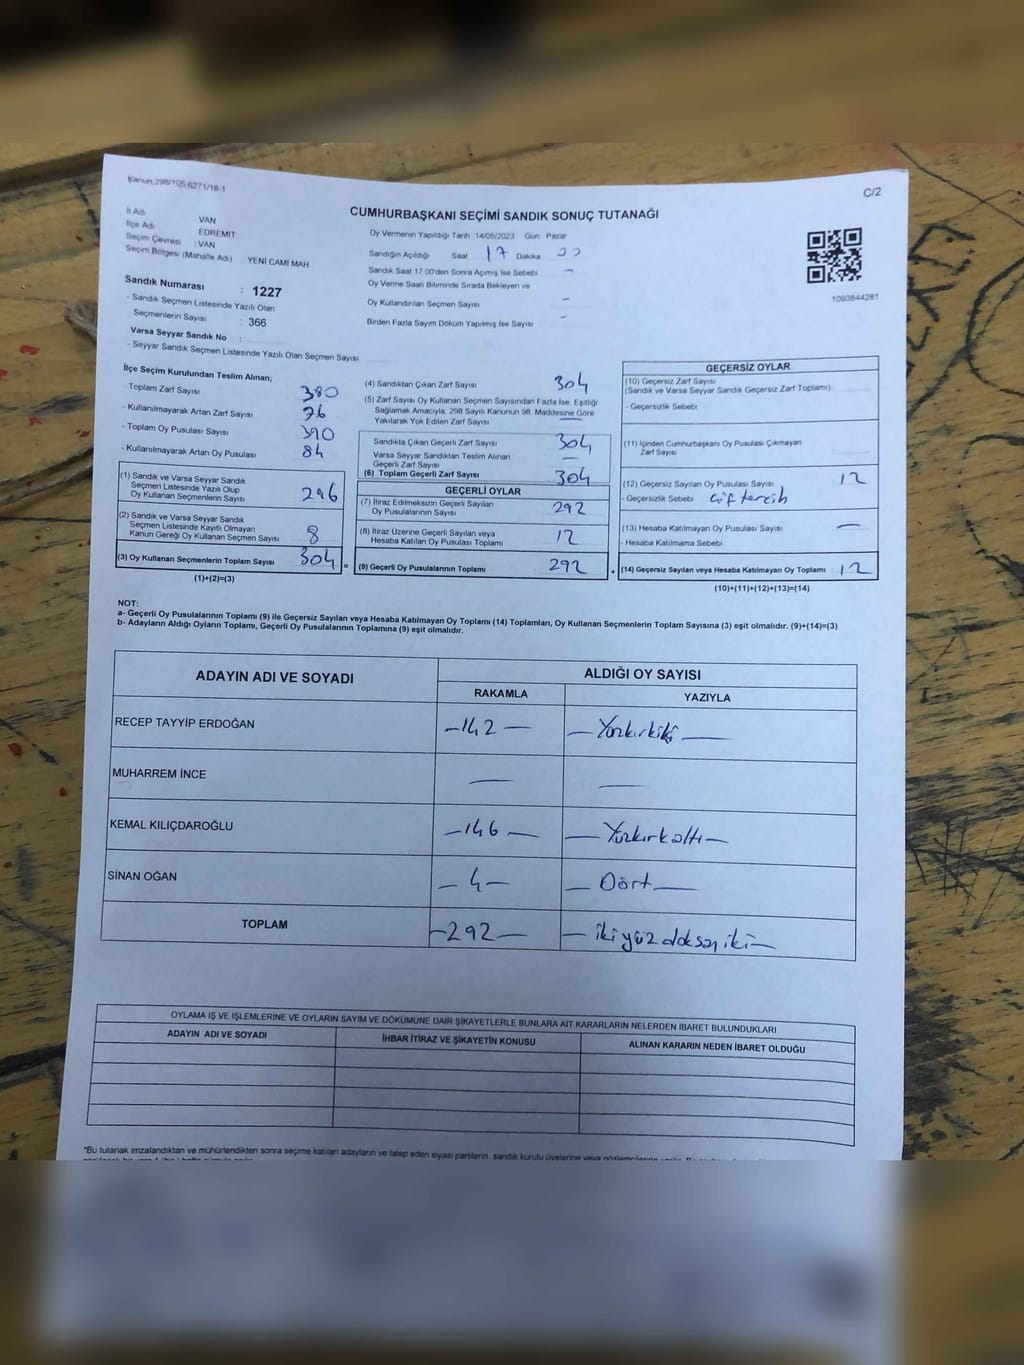 Kanun 298/105,6271/18-1
C/2
CUMHURBAŞKANI SEÇİMİ SANDIK SONUÇ TUTANAĞI
İl Adı VAN
İlçe Adı EDREMIT
Seçim Çevresi : VAN
Seçim Bölgesi (Mahalle Adı) YENİ CAMİ MAH
Sandık Numarası : 1227
- Sandık Seçmen Listesinde Yazılı Olan
Seçmenlerin Sayısı : 366
Varsa Seyyar Sandık No :
- Seyyar Sandık Seçmen Listesinde Yazılı Olan Seçmen Sayısı
Oy Vermenin Yapıldığı Tarih 14/05/2023 Gün Pazar
Sandığın Açıldığı Saat 17 Dakika
Sandık Saat 17:00'den Sonra Açımış İse Sebebi –
Oy Verme Saati Bitiminde Sırada Bekleyen ve
Oy Kullandırılan Seçmen Sayısı –
Birden Fazla Sayım Döküm Yapılmış İse Sayısı –
1093844281
İlçe Seçim Kurulundan Teslim Alınan;
- Toplam Zarf Sayısı 380
- Kullanılmayarak Artan Zarf Sayısı 76
- Toplam Oy Pusulası Sayısı 390
- Kullanılmayarak Artan Oy Pusulası 84
(1) Sandık ve Varsa Seyyar Sandık
Seçmen Listesinde Yazılı Olup
Oy Kullanan Seçmenlerin Sayısı 296
(2) Sandık ve Varsa Seyyar Sandık
Seçmen Listesinde Kayıtlı Olmayan
Kanun Gereği Oy Kullanan Seçmen Sayısı 8
(3) Oy Kullanan Seçmenlerin Toplam Sayısı 304 =
(1)+(2)=(3)
(4) Sandıktan Çıkan Zarf Sayısı 304
(5) Zarf Sayısı Oy Kullanan Seçmen Sayısından Fazla İse, Eşitliği
Sağlamak Amacıyla, 298 Sayılı Kanunun 98. Maddesine Göre
Yakılarak Yok Edilen Zarf Sayısı —
Sandıkta Çıkan Geçerli Zarf Sayısı 304
Varsa Seyyar Sandıktan Teslim Alınan
Geçerli Zarf Sayısı —
(6) Toplam Geçerli Zarf Sayısı 304
GEÇERLİ OYLAR
(7) İtiraz Edilmeksizin Geçerli Sayılan
Oy Pusulalarının Sayısı 292
(8) İtiraz Üzerine Geçerli Sayılan veya
Hesaba Katılan Oy Pusulası Toplamı 12
(9) Geçerli Oy Pusulalarının Toplamı 292 +
GEÇERSİZ OYLAR
(10) Geçersiz Zarf Sayısı
(Sandık ve Varsa Seyyar Sandık Geçersiz Zarf Toplamı)
- Geçersizlik Sebebi
(11) İçinden Cumhurbaşkanı Oy Pusulası Çıkmayan
Zarf Sayısı
(12) Geçersiz Sayılan Oy Pusulası Sayısı 12
- Geçersizlik Sebebi Çift tercih
(13) Hesaba Katılmayan Oy Pusulası Sayısı —
- Hesaba Katılmama Sebebi
(14) Geçersiz Sayılan veya Hesaba Katılmayan Oy Toplamı 12
(10)+(11)+(12)+(13)=(14)
NOT:
a- Geçerli Oy Pusulalarının Toplamı (9) ile Geçersiz Sayılan veya Hesaba Katılmayan Oy Toplamı (14) Toplamları, Oy Kullanan Seçmenlerin Toplam Sayısına (3) eşit olmalıdır. (9)+(14)=(3)
b- Adayların Aldığı Oyların Toplamı, Geçerli Oy Pusulalarının Toplamına (9) eşit olmalıdır.
ADAYIN ADI VE SOYADI ALDIĞI OY SAYISI
RAKAMLA YAZIYLA
RECEP TAYYİP ERDOĞAN –142 — — Yüzkırkiki —
MUHARREM İNCE — —
KEMAL KILIÇDAROĞLU –146 — — Yüzkırkaltı —
SİNAN OĞAN – 4 – — Dört —
TOPLAM –292 — — ikiyüzdoksaniki —
OYLAMA İŞ VE İŞLEMLERİNE VE OYLARIN SAYIM VE DÖKÜMÜNE DAİR ŞİKAYETLERLE BUNLARA AİT KARARLARIN NELERDEN İBARET BULUNDUKLARI
ADAYIN ADI VE SOYADI İHBAR İTİRAZ VE ŞİKAYETİN KONUSU ALINAN KARARIN NEDEN İBARET OLDUĞU
*Bu tutanak imzalandıktan ve mühürlendikten sonra seçime katılan adayların ve talep eden siyasi partilerin sandık kurulu üyelerine veya gözlemcilerine verilir.